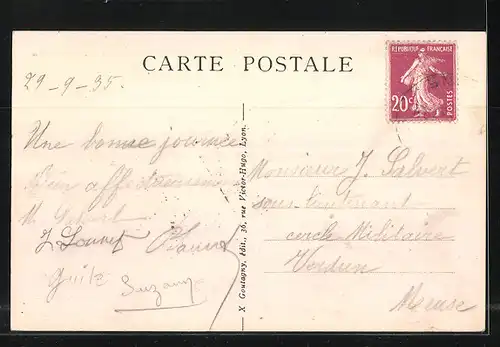 CARTE POSTALE
29-9-35.
RÉPUBLIQUE FRANÇAISE
20c
POSTES
Une bonne journée
Bien affectueusement
Suzanne
X Goutagny, édit., 36, rue Victor-Hugo, Lyon.
Monsieur J. Salvert
sous-lieutenant
cercle Militaire
Verdun
Meuse